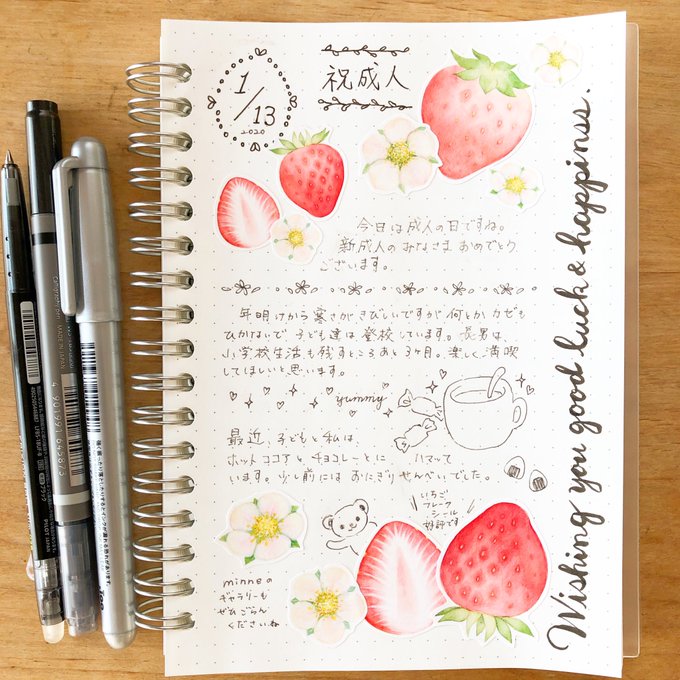 1/13
2020
祝成人
今日は成人の日ですね。
新成人のみなさま おめでとう
ございます。
年明けから寒さがきびしいですが 何とか カゼも
ひかないで 子ども達は 登校しています。長男は、
小学校生活も残すところあと3ヶ月。楽しく 満喫
してほしいと思います。
yummy
最近、子どもと私は、
ホットココアと チョコレートに ハマって
います。少し前には おにぎりせんべいでした。
いちご
フレーク
シール
好評です
minneの
ギャラリーも
ぜひごらん
くださいね
Wishing you good luck & happinss.
MADE IN JAPAN
4 901991 645873
PILOT JAPAN